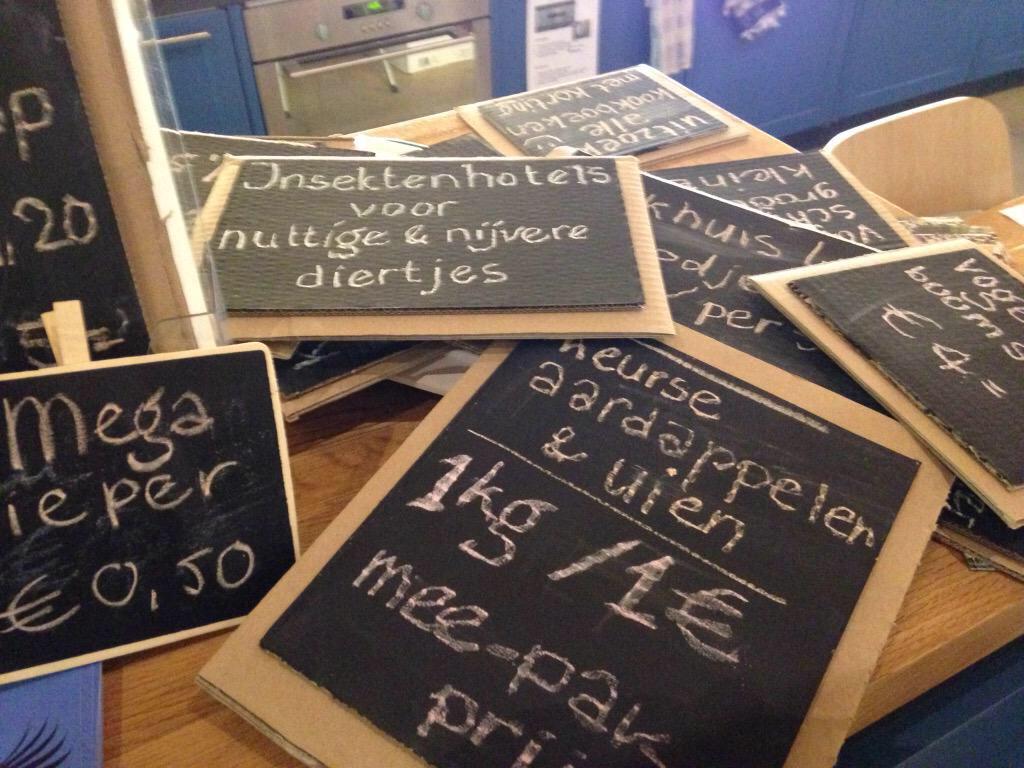 p
,20
Insektenhotels
voor
nuttige & nijvere
diertjes
uitzoek
alle
kookboeken
met korting
groot
klein
khuis
per
€ 4 =
Mega
ieper
€ 0,50
heurse
aardappelen
& uien
1kg / 1€
mee-pak
prij